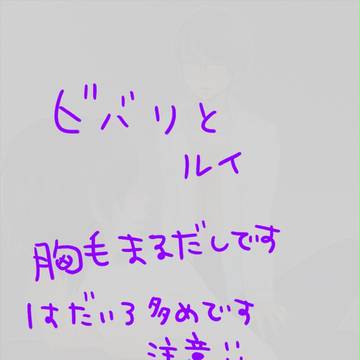 ビバリと
ルイ
胸毛まるだしです
はだいろ多めです
注意!!